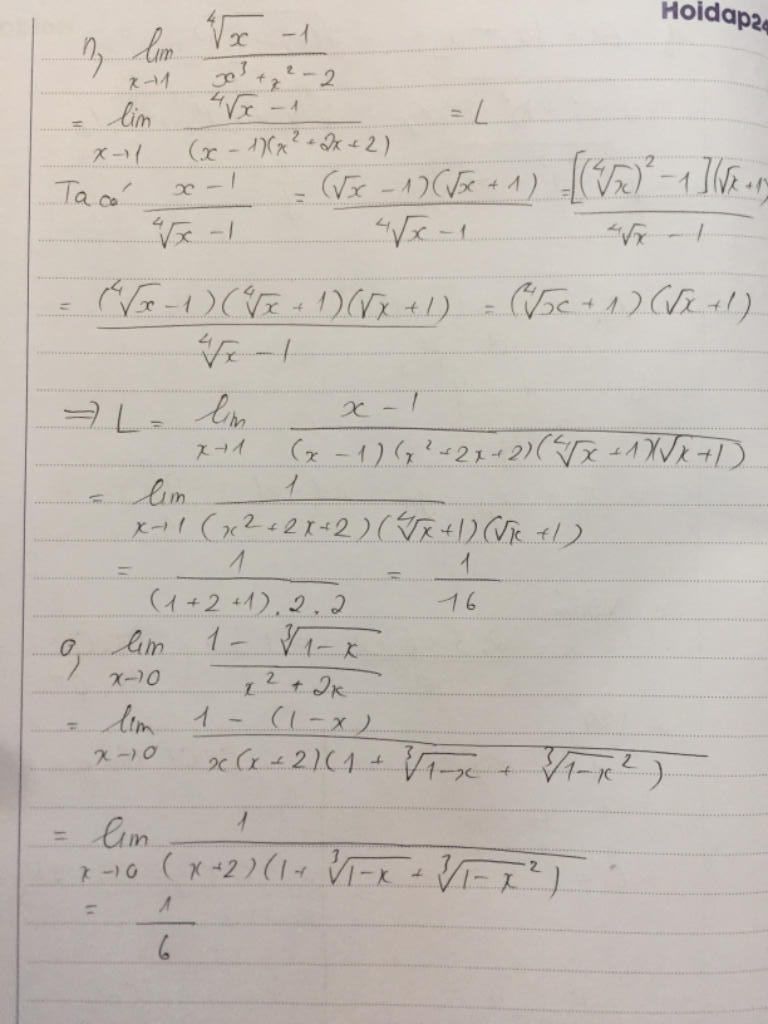 Hoidap24
n, lim x→1 (∜x - 1)/(x³ + x² - 2)
= lim x→1 (∜x - 1)/((x - 1)(x² + 2x + 2)) = L
Ta có (x - 1)/(∜x - 1) = ((√x - 1)(√x + 1))/(∜x - 1) = ([(∜x)² - 1](√x + 1)/(∜x - 1)
= ((∜x - 1)(∜x + 1)(√x + 1))/(∜x - 1) = (∜x + 1)(√x + 1)
⇒ L = lim x→1 (x - 1)/((x - 1)(x² + 2x + 2)(∜x + 1)(√x + 1))
= lim x→1 1/((x² + 2x + 2)(∜x + 1)(√x + 1))
= 1/((1 + 2 + 1).2.2) = 1/16
o, lim x→0 (1 - ∛(1-x))/(x² + 2x)
= lim x→0 (1 - (1 - x))/(x(x + 2)(1 + ∛(1-x) + ∛(1-x)²))
= lim x→0 1/((x + 2)(1 + ∛(1-x) + ∛(1-x)²))
= 1/6